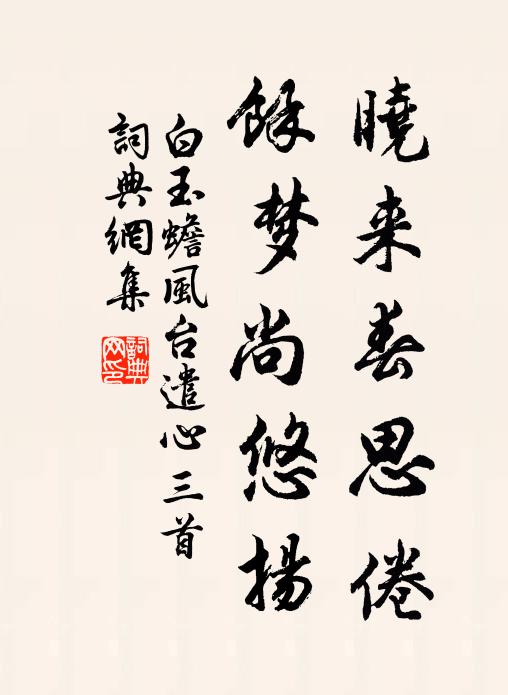 曉来春思倦
馀梦尚悠揚
白玉蟾風台遣心三首
詞典網集
詞典網印